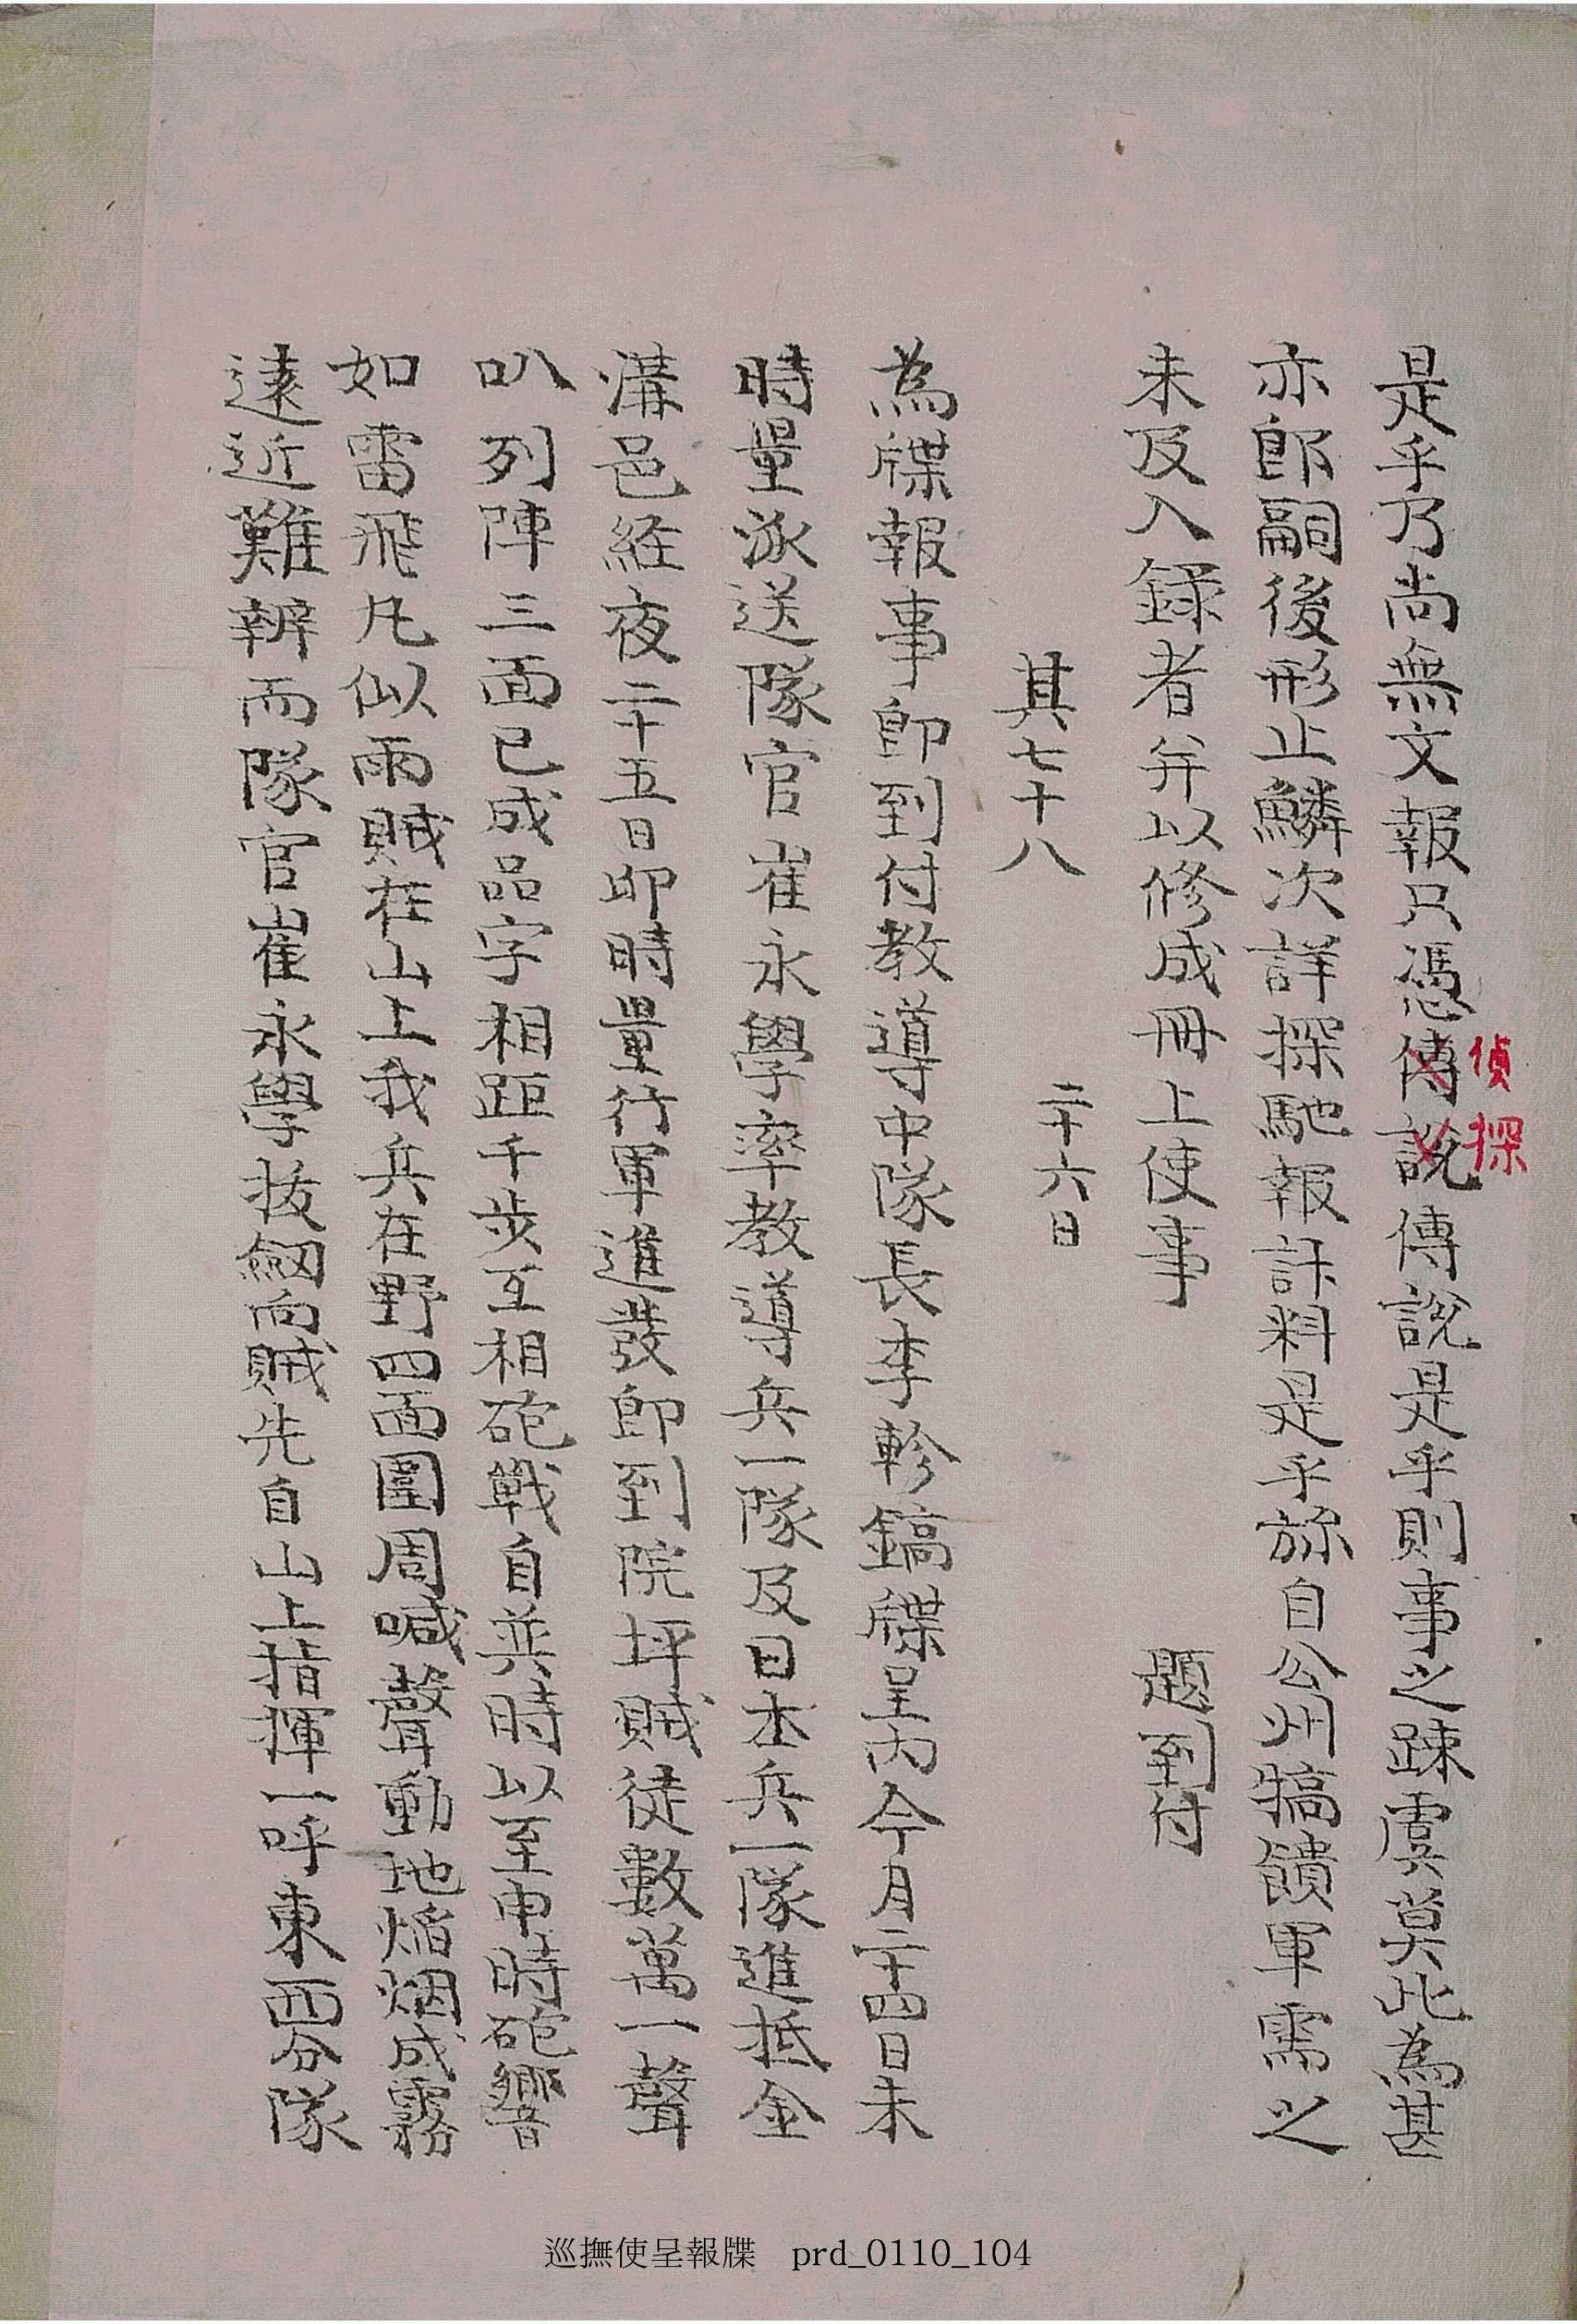 是乎乃尚無文報只憑傳說傳說是乎則事之踈虞莫此為甚
偵探
亦郎嗣後形止鱗次詳探馳報計料是乎旀自公州犒饋軍需之
未及入録者并以修成冊上使事 題到付
其七十八 二十六日
為牒報事卽到付教導中隊長李軫鎬牒呈內今月二十四日未
時量派送隊官崔永學率教導兵一隊及日本兵一隊進抵金
溝邑經夜二十五日卯時量行軍進發卽到院坪賊徒數萬一聲
叭列陣三面已成品字相距千步互相砲戰自共時以至申時砲響
如雷飛凡似雨賊在山上我兵在野四面圍周喊聲動地焰烟成霧
遠近難辨而隊官崔永學拔劒向賊先自山上指揮一呼東西分隊
巡撫使呈報牒 prd_0110_104